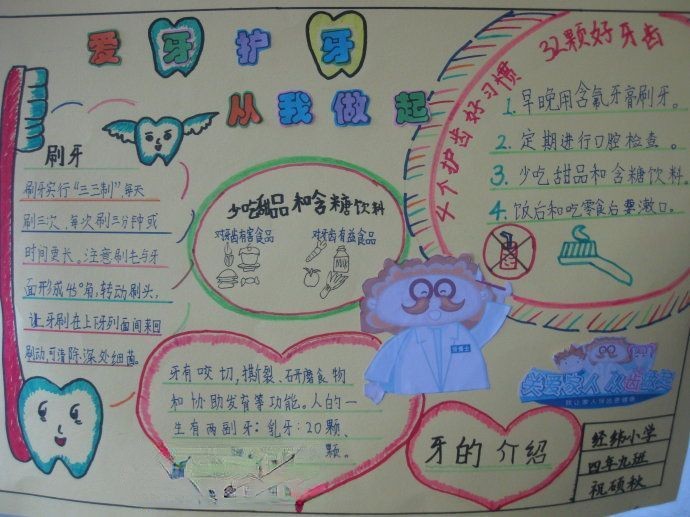 爱牙护牙
从我做起
刷牙
刷牙实行“三三制”，每天
刷三次，每次刷三分钟或
时间更长。注意刷毛与牙
面形成45°角，转动刷头，
让牙刷在上下牙列面间来回
刷动，可清除深处细菌。
少吃甜品和含糖饮料
对牙齿有害食品
对牙齿有益食品
4个护齿好习惯 32颗好牙齿
1. 早晚用含氟牙膏刷牙。
2. 定期进行口腔检查。
3. 少吃甜品和含糖饮料。
4. 饭后和吃零食后要漱口。
牙有咬切，撕裂、研磨食物
和协助发音等功能。人的一
生有两副牙：乳牙：20颗、
颗。
牙的介绍
经纬小学
四年九班
祝硕秋